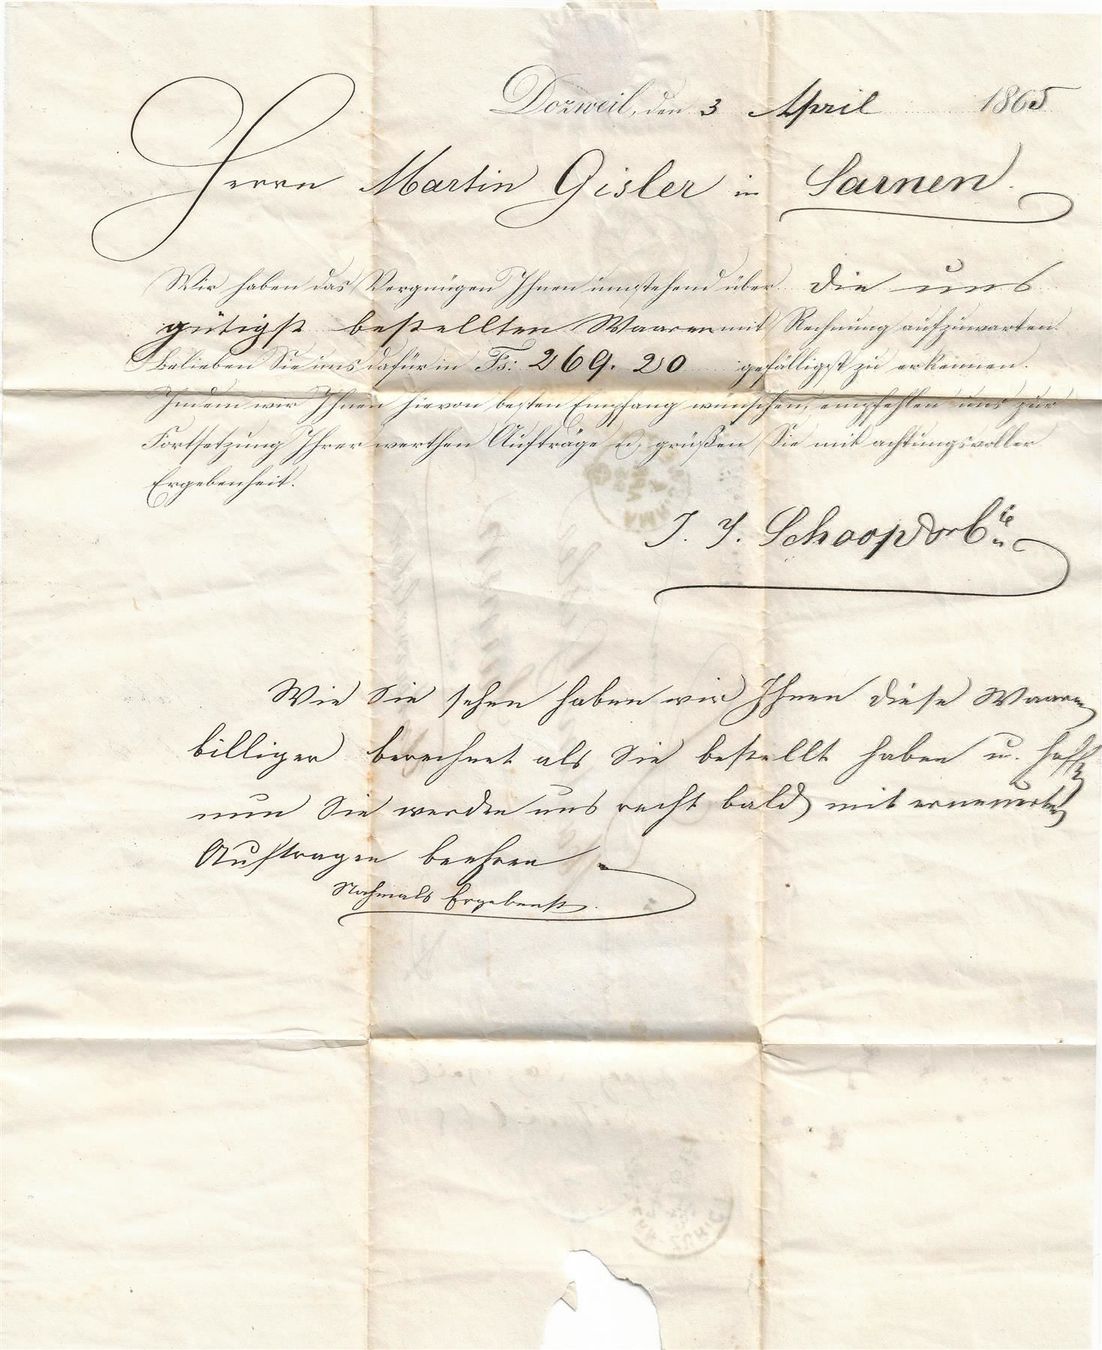 Dozweil, den 3 April 1865
Herrn Martin Gisler in Sarnen.
Wir haben das Vergnügen Ihnen umstehend über die uns
gütigst bestellten Waaren mit Rechnung aufzuwarten.
Belieben Sie uns dafür in Fs: 269. 20 gefälligst zu erkennen.
Indem wir Ihnen hievon besten Empfang wünschen, empfehlen uns zur
Fortsetzung Ihrer werthen Aufträge u. grüßen Sie mit achtungsvoller
Ergebenheit.
J. J. Schoop & Cie
Wie Sie sehen haben wir Ihnen diese Waaren
billiger berechnet als Sie bestellt haben u. hoffen
nun Sie werden uns recht bald mit erneuerten
Aufträgen beehren
Nochmals Ergebenst.